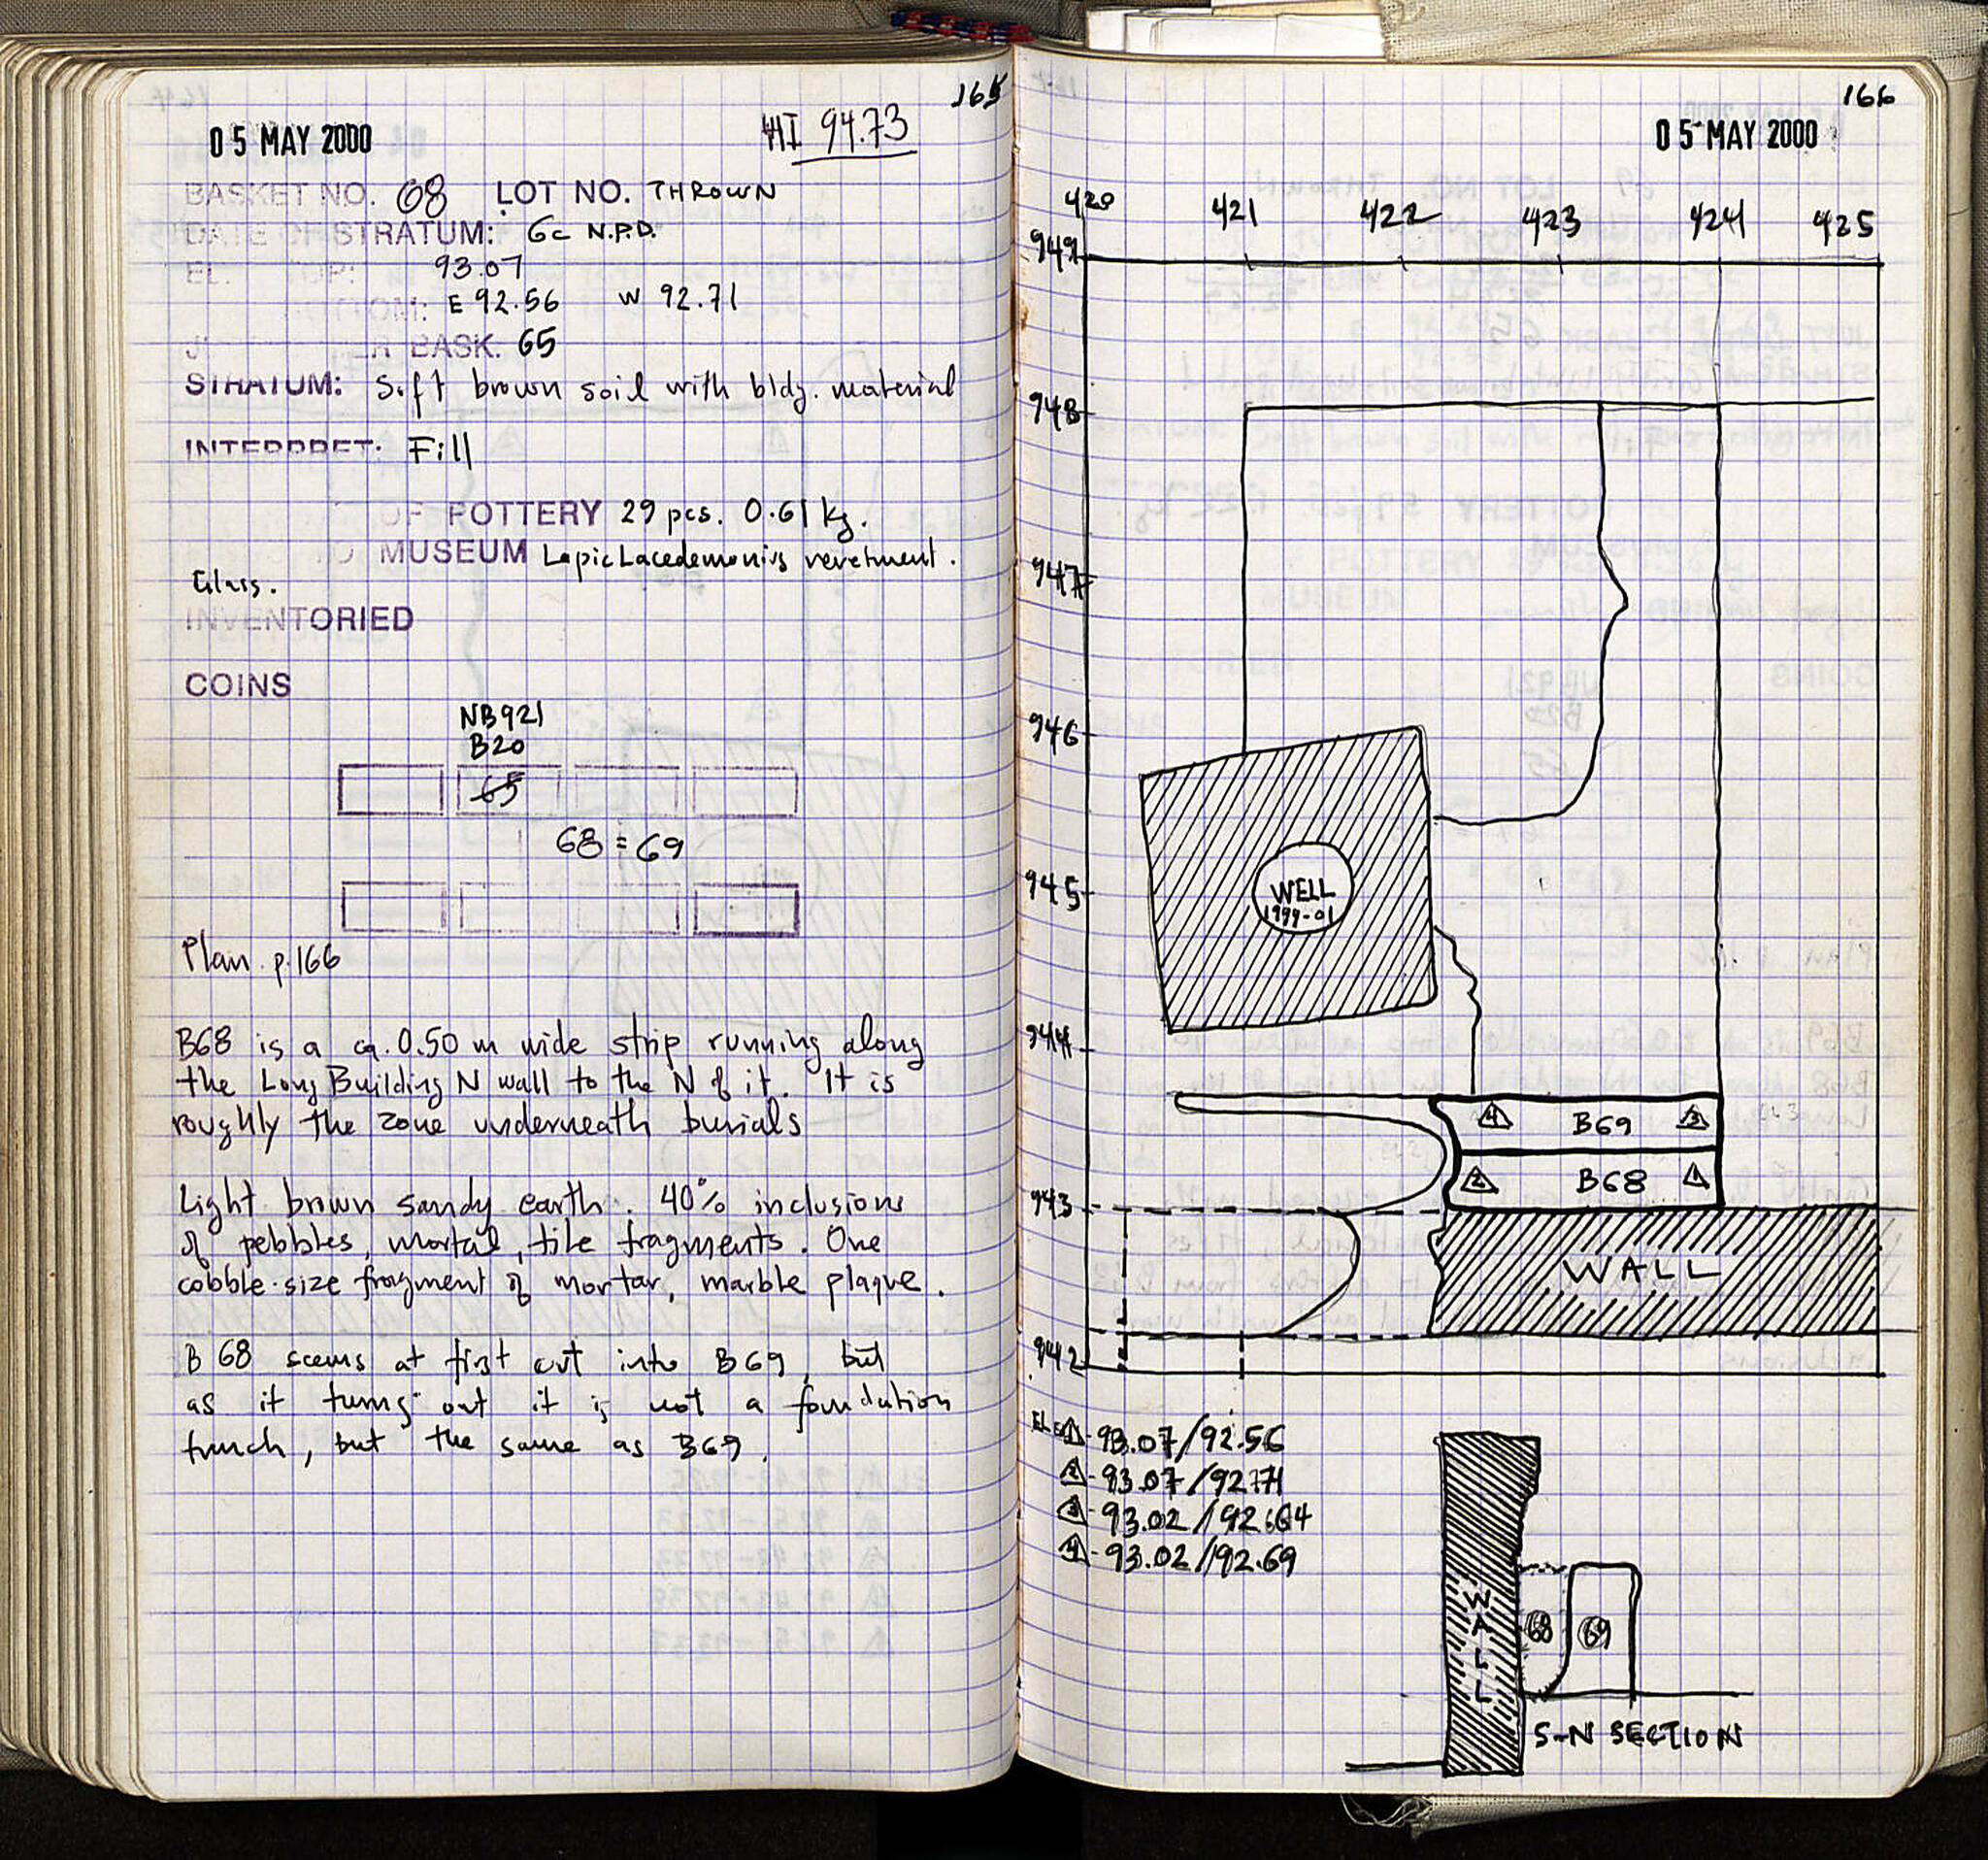 165
05 MAY 2000
HI 94.73
BASKET NO. 68 LOT NO. THROWN
DATE OF STRATUM: 6c N.P.D.
EL. TOP: 93.07
BOTTOM: E 92.56 W 92.71
BASK. 65
STRATUM: Soft brown soil with bldg. material
INTERPRET: Fill
OF POTTERY 29 pcs. 0.61 kg.
MUSEUM Lapis Lacedemonius revetment.
Glass.
INVENTORIED
COINS
NB921
B20
65
68 = 69
Plan p.166
B68 is a ca. 0.50 m wide strip running along
the Long Building N wall to the N of it. It is
roughly the zone underneath burials
Light brown sandy earth. 40% inclusions
of pebbles, mortar, tile fragments. One
cobble-size fragment of mortar, marble plaque.
B 68 seems at first cut into B69, but
as it turns out it is not a foundation
trench, but the same as B69.
166
05 MAY 2000
420 421 422 423 424 425
949
948
947
946
945
WELL
1999-01
944
4 B69 3
2 B68 1
943
WALL
942
1 - 93.07/92.56
2 - 93.07/92.71
3 - 93.02/92.64
4 - 93.02/92.69
WALL
68 69
S-N SECTION